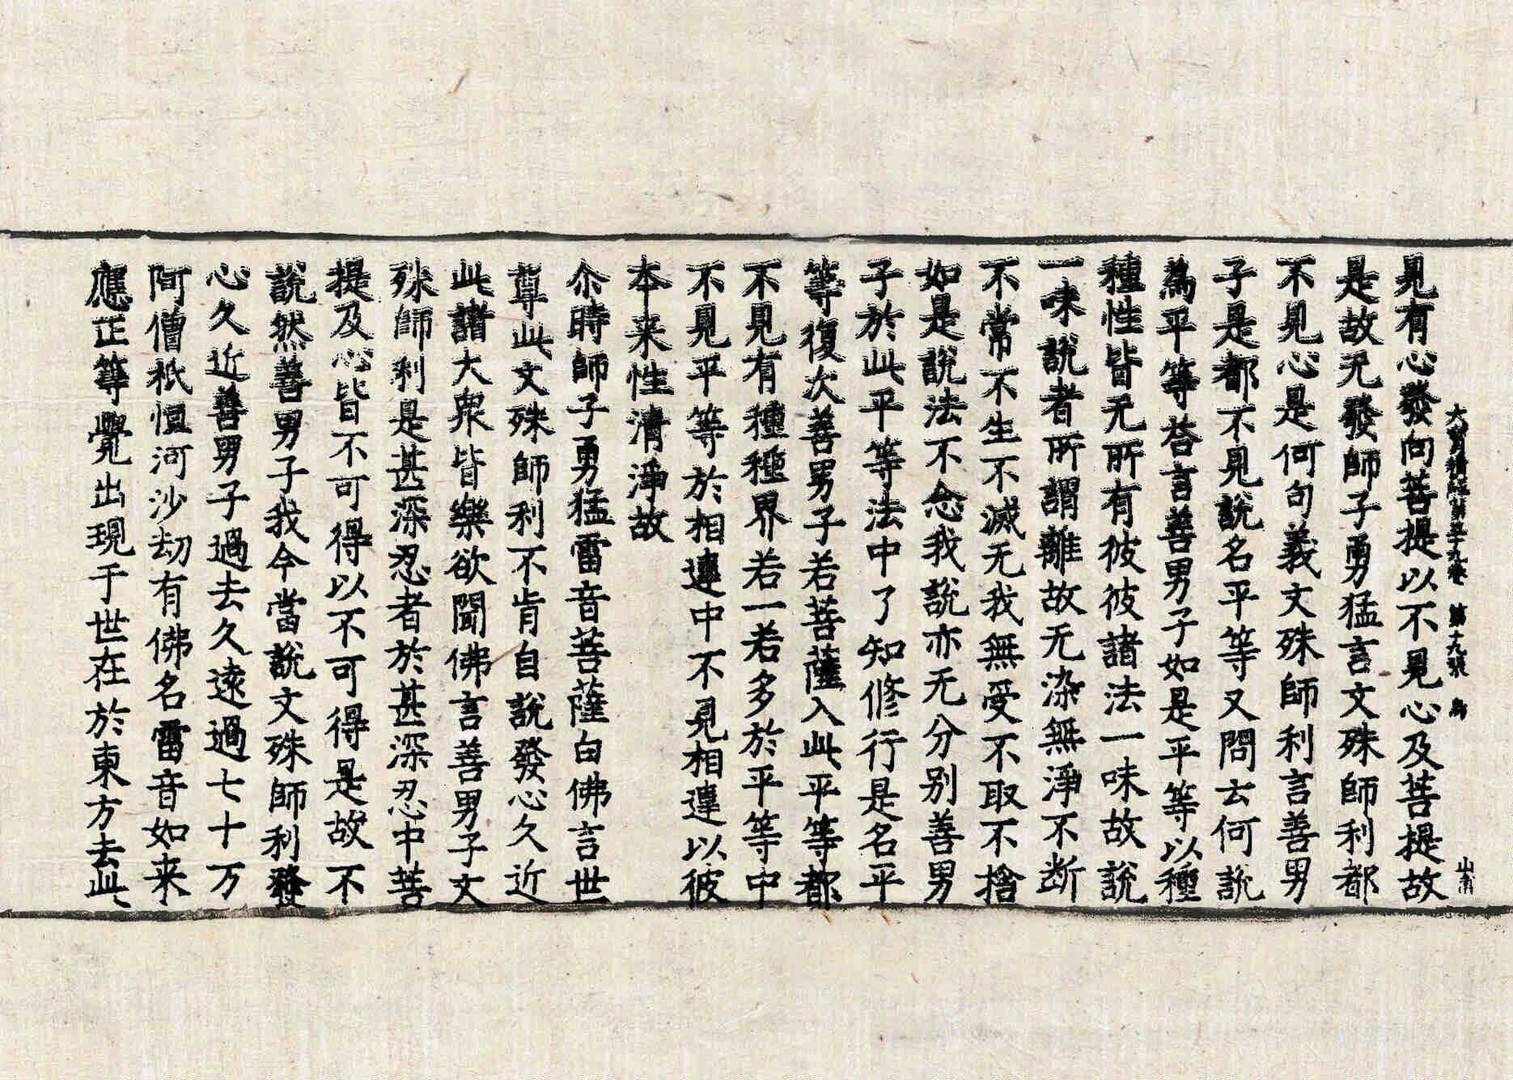 大寶積經第五十九卷 第十九張 鳥
山甫
見有心發向菩提以不見心及菩提故
是故无發師子勇猛言文殊師利都
不見心是何句義文殊師利言善男
子是都不見說名平等又問云何說
為平等答言善男子如是平等以種
種性皆无所有彼彼諸法一味故說
一味說者所謂離故无染無淨不断
不常不生不滅无我無受不取不捨
如是說法不念我說亦无分别善男
子於此平等法中了知修行是名平
等復次善男子若菩薩入此平等都
不見有種種界若一若多於平等中
不見平等於相違中不見相違以彼
本来性清淨故
尒時師子勇猛雷音菩薩白佛言世
尊此文殊師利不肯自說發心久近
此諸大衆皆樂欲聞佛言善男子文
殊師利是甚深忍者於甚深忍中菩
提及心皆不可得以不可得是故不
說然善男子我今當說文殊師利發
心久近善男子過去久遠過七十万
阿僧祇恒河沙劫有佛名雷音如来
應正等覺出現于世在於東方去此